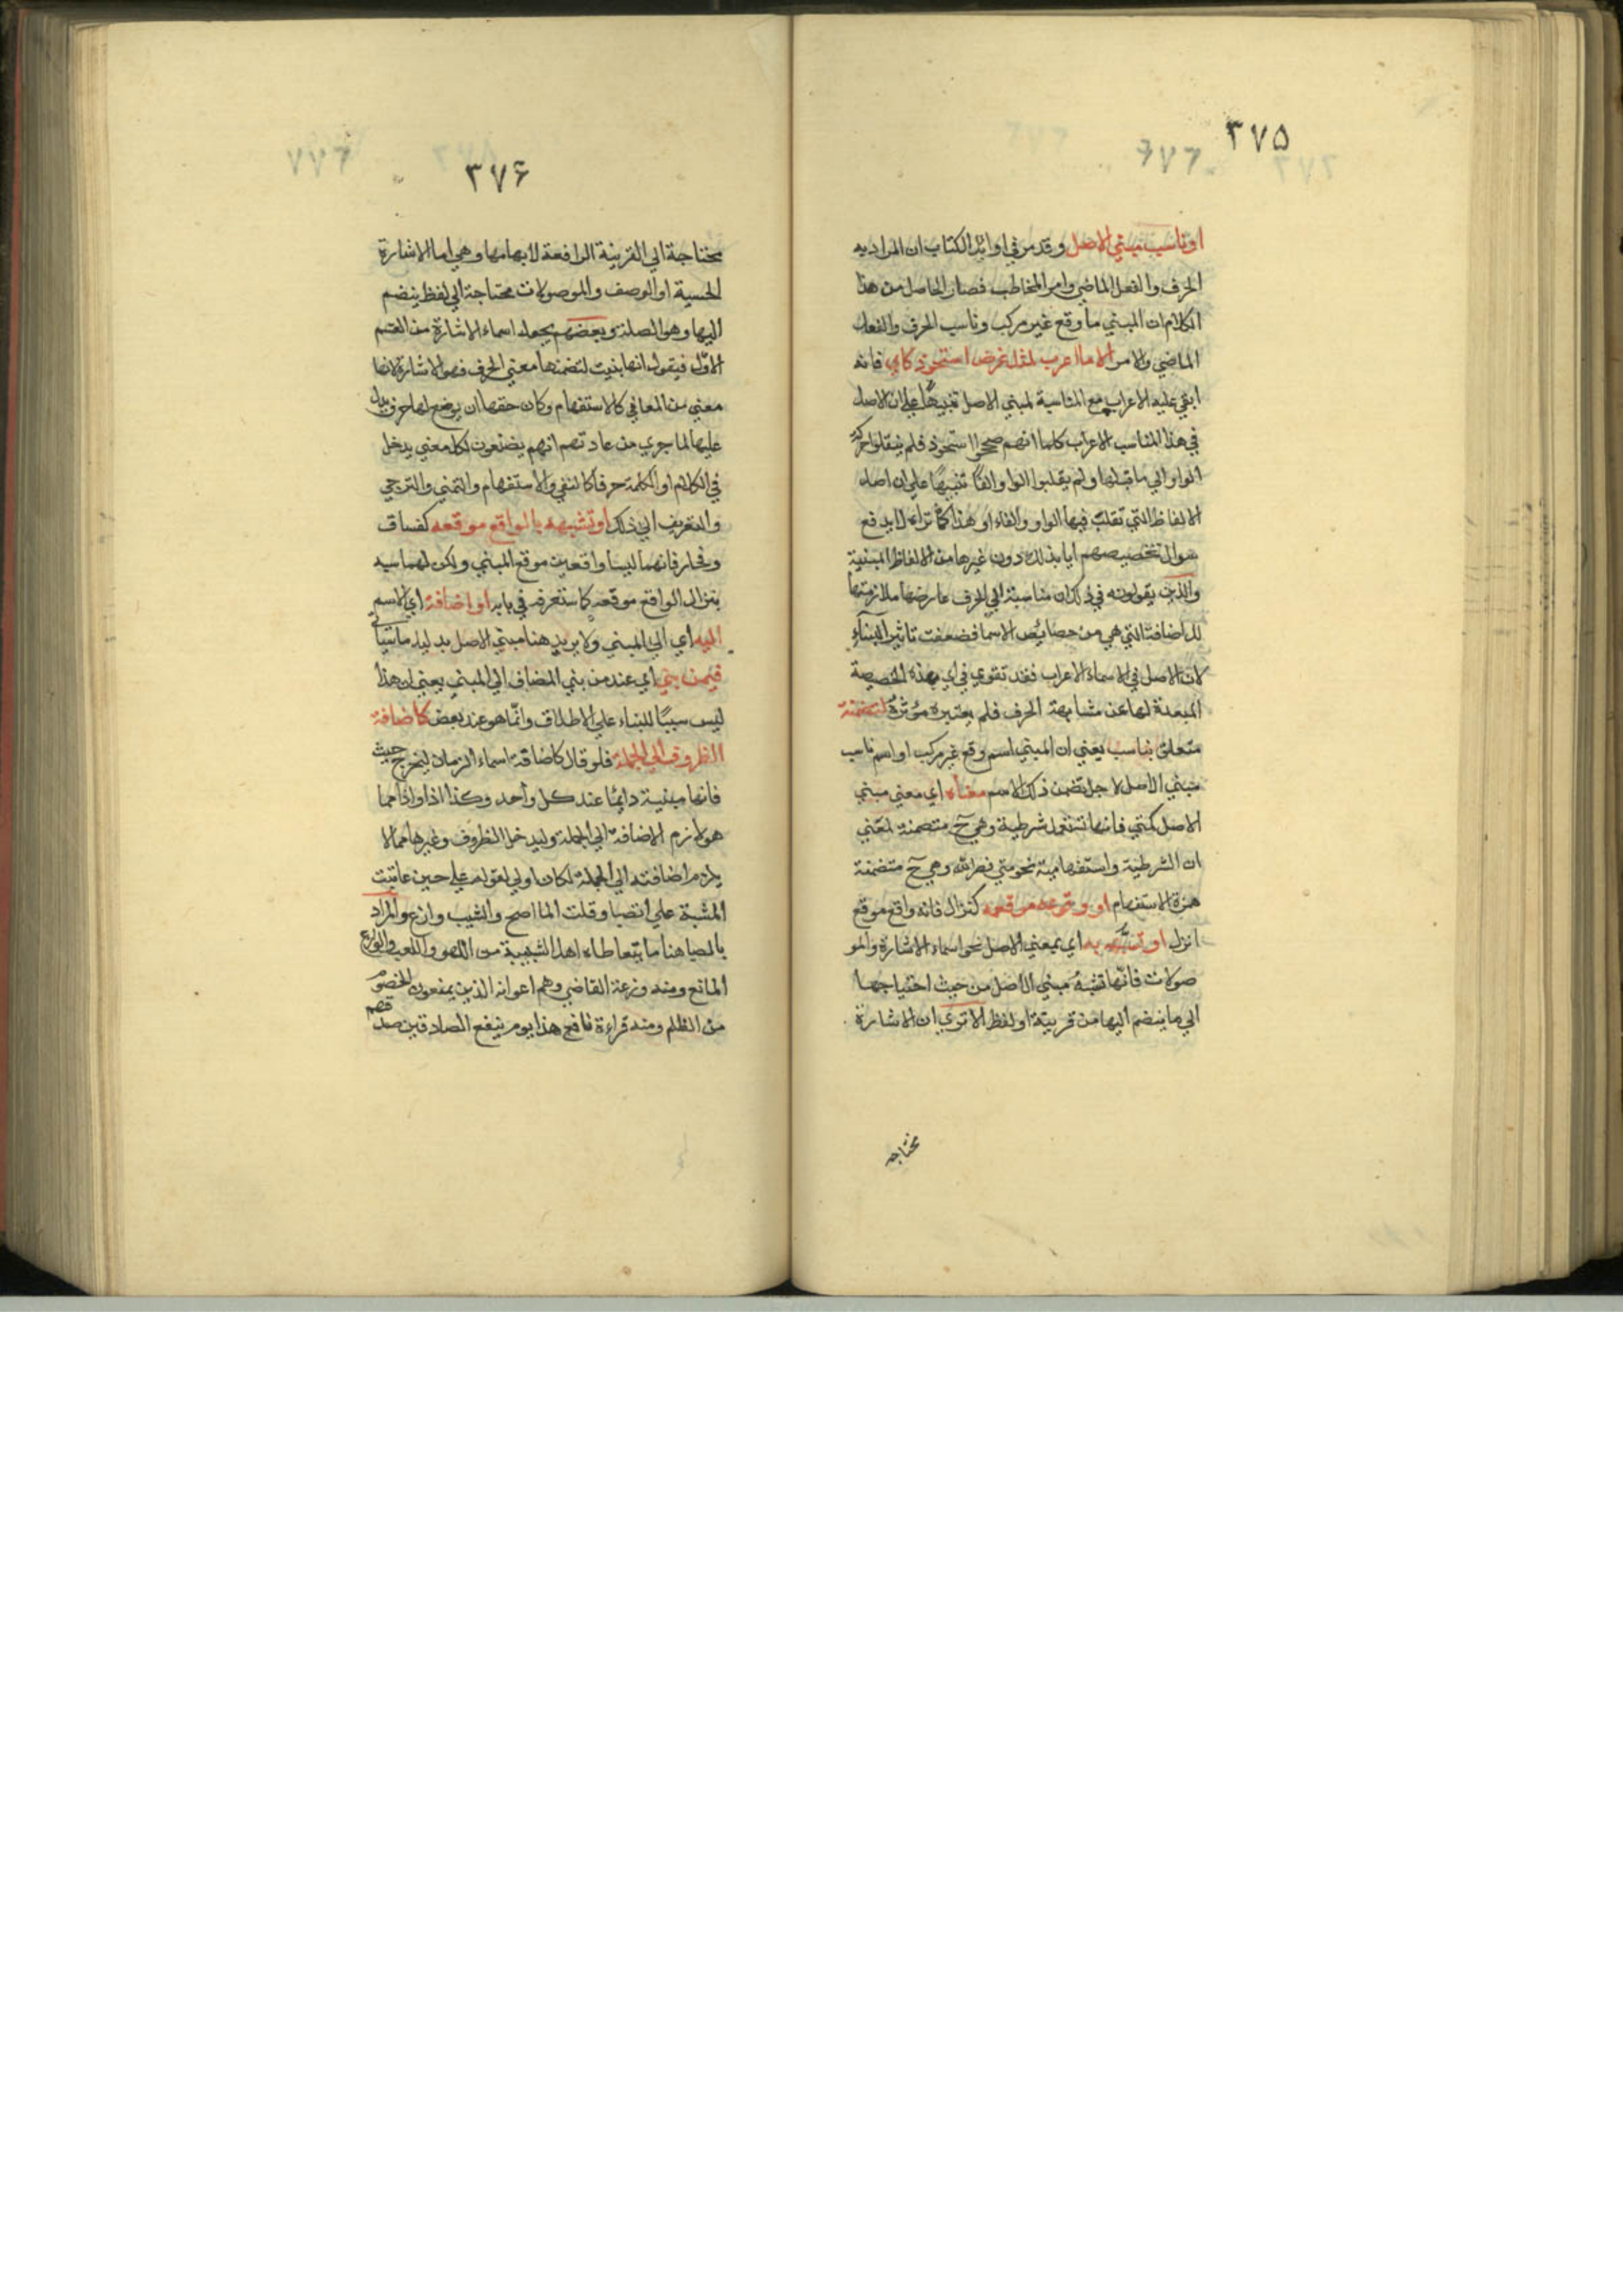 ٣٧۵
او ناسب مبني الاصل وقد مر في اوائل الكتاب ان المراد به
الحرف والفعل الماضي وامر المخاطب فصار الحاصل من هذا
الكلام ان المبني ما وقع غير مركب وناسب الحرف والفعل
الماضي والامر الا ما اعرب لمثل غرض استحوذ كاي فانه
ابقي عليه الاعراب مع المناسبة لمبني الاصل تنبيهًا علي ان الاصل
في هذا المناسب الاعراب كما انهم صححوا استحوذ فلم ينقلوا حركة
الواو الي ما قبلها ولم يقلبوا الواو الفًا تنبيهًا علي ان اصل
الالفاظ التي تقلب فيها الواو والفاء او هذا كما تراه لا يدفع
سوال تخصيصهم ايا بذلك دون غيرها من الالفاظ المبنية
والذي يقولونه في ذلك ان مناسبة اي الحرف عارضها ملازمتها
للاضافة التي هي من خصايص الاسما فضعفت تاثير البناء
لان الاصل في الاسماء الاعراب فقد تقوي في اي بهذه الخصيصة
المبعدة لها عن مشابهة الحرف فلم يعتبره مؤثرة لتضمنه
متعلق بناسب يعني ان المبني اسم وقع غير مركب او اسم ناسب
مبني الاصل لاجل تضمن ذلك الاسم معناه اي معني مبني
الاصل كمتي فانها تستعمل شرطية وهي ح متضمنة لمعني
ان الشرطية واستفهامية نحو متي نصر الله وهي ح متضمنة
همزة الاستفهام او وقوعه موقعه كنزال فانه واقع موقع
انزل او تشبهه به اي بمعني الاصل نحو اسماء الاشارة والمو
صولات فانها تشبه مبني الاصل من حيث احتياجها
الي ما ينضم اليها من قرينة او لفظ الا تري ان الاشارة
محتاجه
٣٧۶
محتاجة الي القرينة الرافعة لابهامها وهي اما الاشارة
الحسية او الوصف والموصولات محتاجة الي لفظ ينضم
اليها وهو الصلة وبعضهم يجعل اسماء الاشارة من القسم
الاول فيقول انها بنيت لتضمنها معني الحرف فهو الاشارة لانها
معني من المعاني كالاستفهام وكان حقها ان يوضع لها حرف يدل
عليها لما جري من عادتهم انهم يضعون لكل معني يدخل
في الكلام او الكلمة حرفًا كالنفي والاستفهام والتمني والترجي
والتعريف الي ذلك او تشبهه بالواقع موقعه كفساق
وفجار فانهما ليسا واقعين موقع المبني ولكن لهما سيه
بنزال الواقع موقعه كاستعرفه في بابه او اضافة اي الاسم
اليه اي الي المبني ولا يريد هنا مبني الاصل بدليل ما سيأتي
فيمن بني اي عند من بني المضاف الي المبني يعني ان هذا
ليس سببًا للبناء علي الاطلاق وانما هو عند بعض كاضافة
الظروف الي الجملة فلو قال كاضافة اسماء الزمان ليخرج حيث
فانها مبنية دايمًا عند كل واحد وكذا اذ واذا مما
هو لازم الاضافة الي الجملة وليدخل الظروف وغيرها مما لا
يلزم اضافته الي الجملة لكان اولي لقوله علي حين عاتبت
المشيب علي الصبا وقلت الما اصح والشيب وازع والمراد
بالصبا هنا ما يتعاطاه اهل الشبيبة من اللهو واللعب والوازع
المانع ومنه وزعة القاضي وهم اعوانه الذين يمنعون الخصوم
من الظلم ومنه قراءة نافع هذا يوم ينفع الصادقين صدقهم